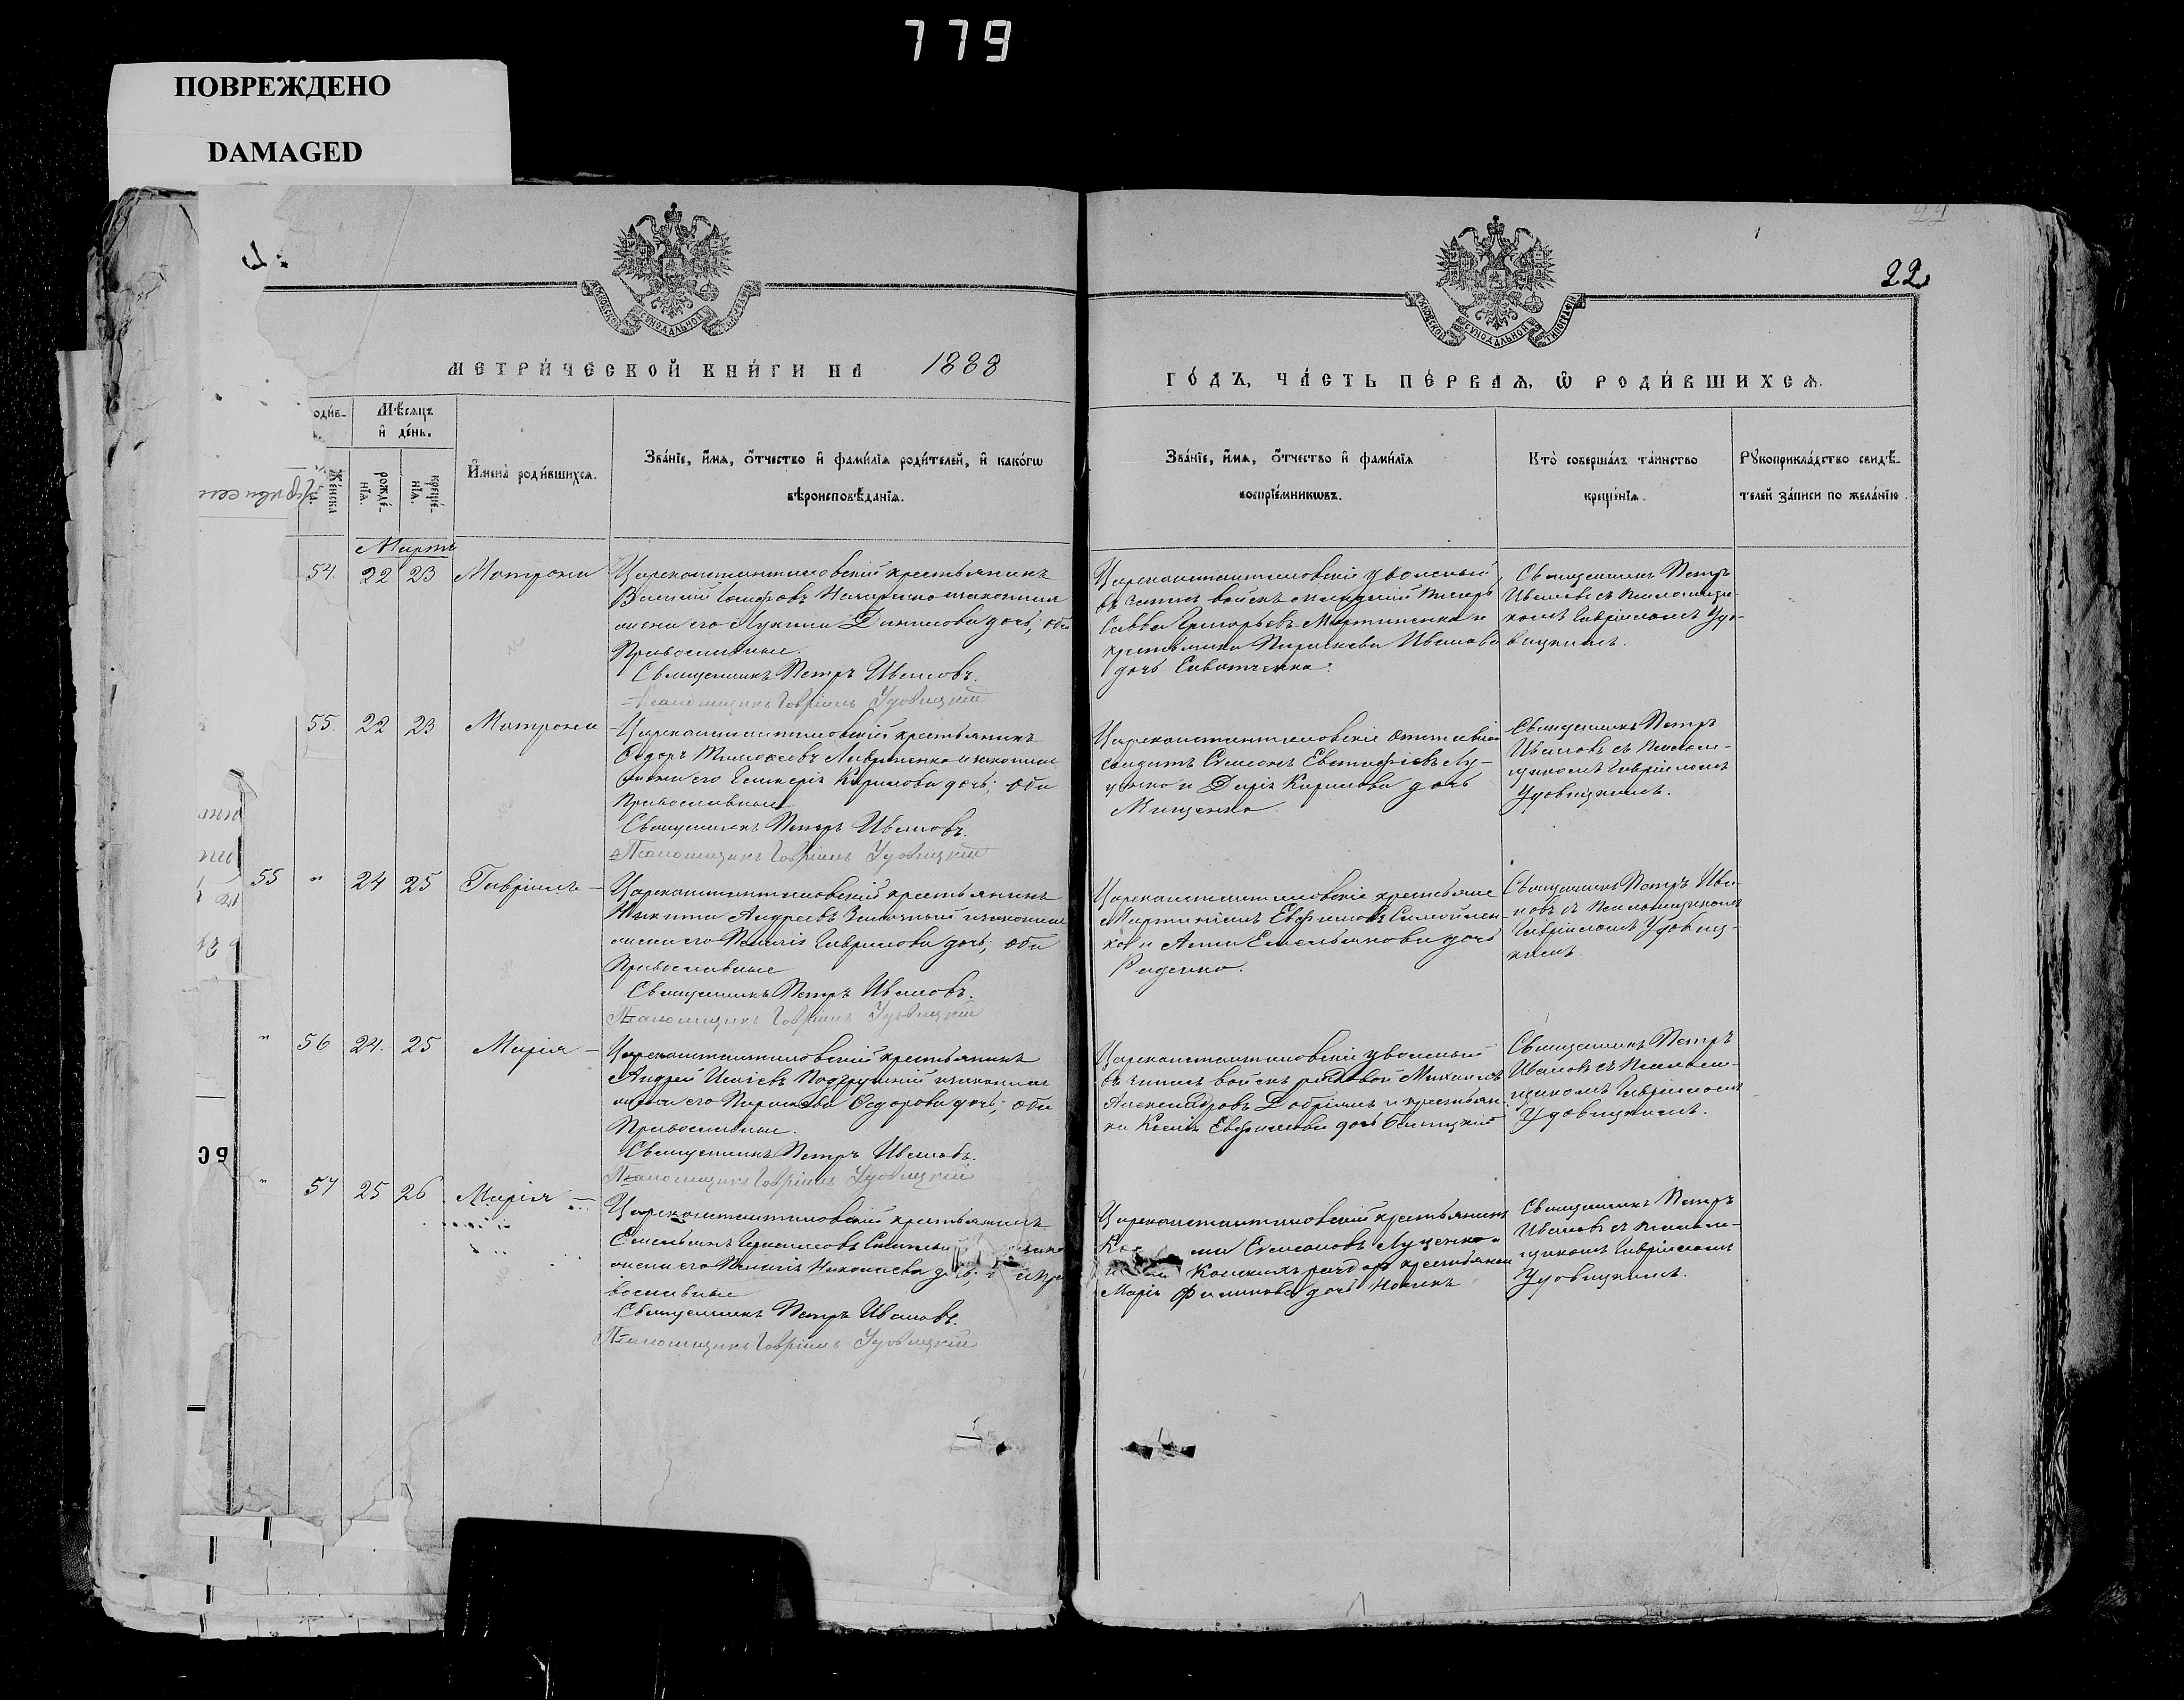 779
ПОВРЕЖДЕНО
DAMAGED
22
МЕТРИ́ЧЕСКОЙ КНИ́ГИ НА 1888
ГО́ДЪ, ЧА́СТЬ ПЕ́РВАѦ, Ѡ РОДИ́ВШИХСѦ.
Мѣ́сяцъ
и҆ де́нь.
Же́нска
рожде́-
нїѧ.
креще́-
нїѧ.
И҆мена̀ роди́вшихсѧ.
Зва́нїе, и҆́мѧ, ѻ҆́тчество и҆ фами́лїѧ роди́телей, и҆ како́гѡ
вѣроисповѣ́данїѧ.
Зва́нїе, и҆́мѧ, ѻ҆́тчество и҆ фами́лїѧ
воспрїе́мникѡвъ.
Кто̀ соверша́лъ та́инство
креще́нїѧ.
Рꙋкоприкла́дство свидѣ́-
телей за́писи по жела́нїю.
Мартъ
54. 22 23 Матрона
Цареконстантиновскій крестьянинъ
Василій Іосифовъ законная
жена его Данилова дочь, оба
Православные.
Священникъ Петръ Ивановъ.
Псаломщикъ Гавріилъ Удовицкій
Цареконстантиновскіе уволенный
въ запасъ войскъ младшій писарь
Савва Григорьевъ Мартыненко и
крестьянка Параскева Иванова
дочь
Священникъ Петръ
Ивановъ съ Псаломщи-
комъ Гавріиломъ Удо-
вицкимъ.
55. 22 23 Матрона
Цареконстантиновскій крестьянинъ
Ѳедоръ Тимоѳеевъ Лавриненко и законная
жена его Гликерія Кирилова дочь; оба
Православные
Священникъ Петръ Ивановъ.
Псаломщикъ Гавріилъ Удовицкій
Цареконстантиновскіе отставной
солдатъ Симеонъ Евстафіевъ Лу-
ценко и Дарія Кирилова дочь
Мищенко
Священникъ Петръ
Ивановъ съ Псалом-
щикомъ Гавріиломъ
Удовицкимъ.
55 " 24 25 Гавріилъ
Цареконстантиновскій крестьянинъ
Никита Андреевъ и законная
жена его Пелагія Гаврилова дочь; оба
Православные
Священникъ Петръ Ивановъ.
Псаломщикъ Гавріилъ Удовицкій
Цареконстантиновскіе крестьяне
Мартиніанъ Евфимовъ Самойлен-
ко и Анна Емельянова дочь
Раденко.
Священникъ Петръ Ива-
новъ съ Псаломщикомъ
Гавріиломъ Удовиц-
кимъ.
" 56 24. 25 Марія
Цареконстантиновскій крестьянинъ
Андрей Исаіевъ и законная
жена его Параскева Ѳедорова дочь; оба
Православные.
Священникъ Петръ Ивановъ.
Псаломщикъ Гавріилъ Удовицкій
Цареконстантиновскіе уволенный
въ запасъ войскъ рядовой Михаилъ
Александровъ и крестьян-
ка Евфимова дочь
Священникъ Петръ
Ивановъ съ Псалом-
щикомъ Гавріиломъ
Удовицкимъ.
" 57 25 26 Марія
Цареконстантиновскій крестьянинъ
Емельянъ
жена его Пелагія Николаева
вославные
Священникъ Петръ Ивановъ.
Псаломщикъ Гавріилъ Удовицкій
Цареконстантиновскій крестьянинъ
Симеоновъ Луценко
крестьянка
Марія Филипова дочь
Священникъ Петръ
Ивановъ съ Псалом-
щикомъ Гавріиломъ
Удовицкимъ.